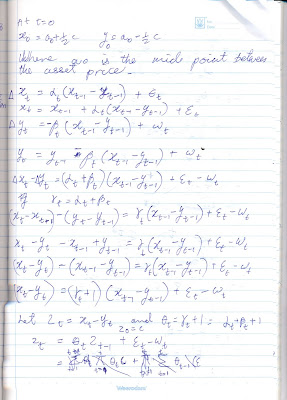 At t=0
x₀ = a₀+½c   y₀ = a₀-½c
Where a₀ is the mid point between
the asset price.
Δ x_t = α_t(x_{t-1} - y_{t-1}) + ε_t
x_t = x_{t-1} + α_t(x_{t-1} - y_{t-1}) + ε_t
Δ y_t = -β_t(x_{t-1} - y_{t-1}) + ω_t
y_t = y_{t-1} - β_t(x_{t-1} - y_{t-1}) + ω_t
Δx_t - Δy_t = (α_t+β_t)(x_{t-1} - y_{t-1}) + ε_t - ω_t
γ_t = α_t+β_t
(x_t - x_{t-1}) - (y_t - y_{t-1}) = γ_t(x_{t-1} - y_{t-1}) + ε_t - ω_t
x_t - y_t - x_{t-1} + y_{t-1} = γ_t(x_{t-1} - y_{t-1}) + ε_t - ω_t
(x_t - y_t) - (x_{t-1} - y_{t-1}) = γ_t(x_{t-1} - y_{t-1}) + ε_t - ω_t
(x_t - y_t) = (γ_t+1)(x_{t-1} - y_{t-1}) + ε_t - ω_t
Let z_t = x_t - y_t and θ_t = γ_t+1 = α_t+β_t+1
z₀=c
z_t = θ_t z_{t-1} + ε_t - ω_t